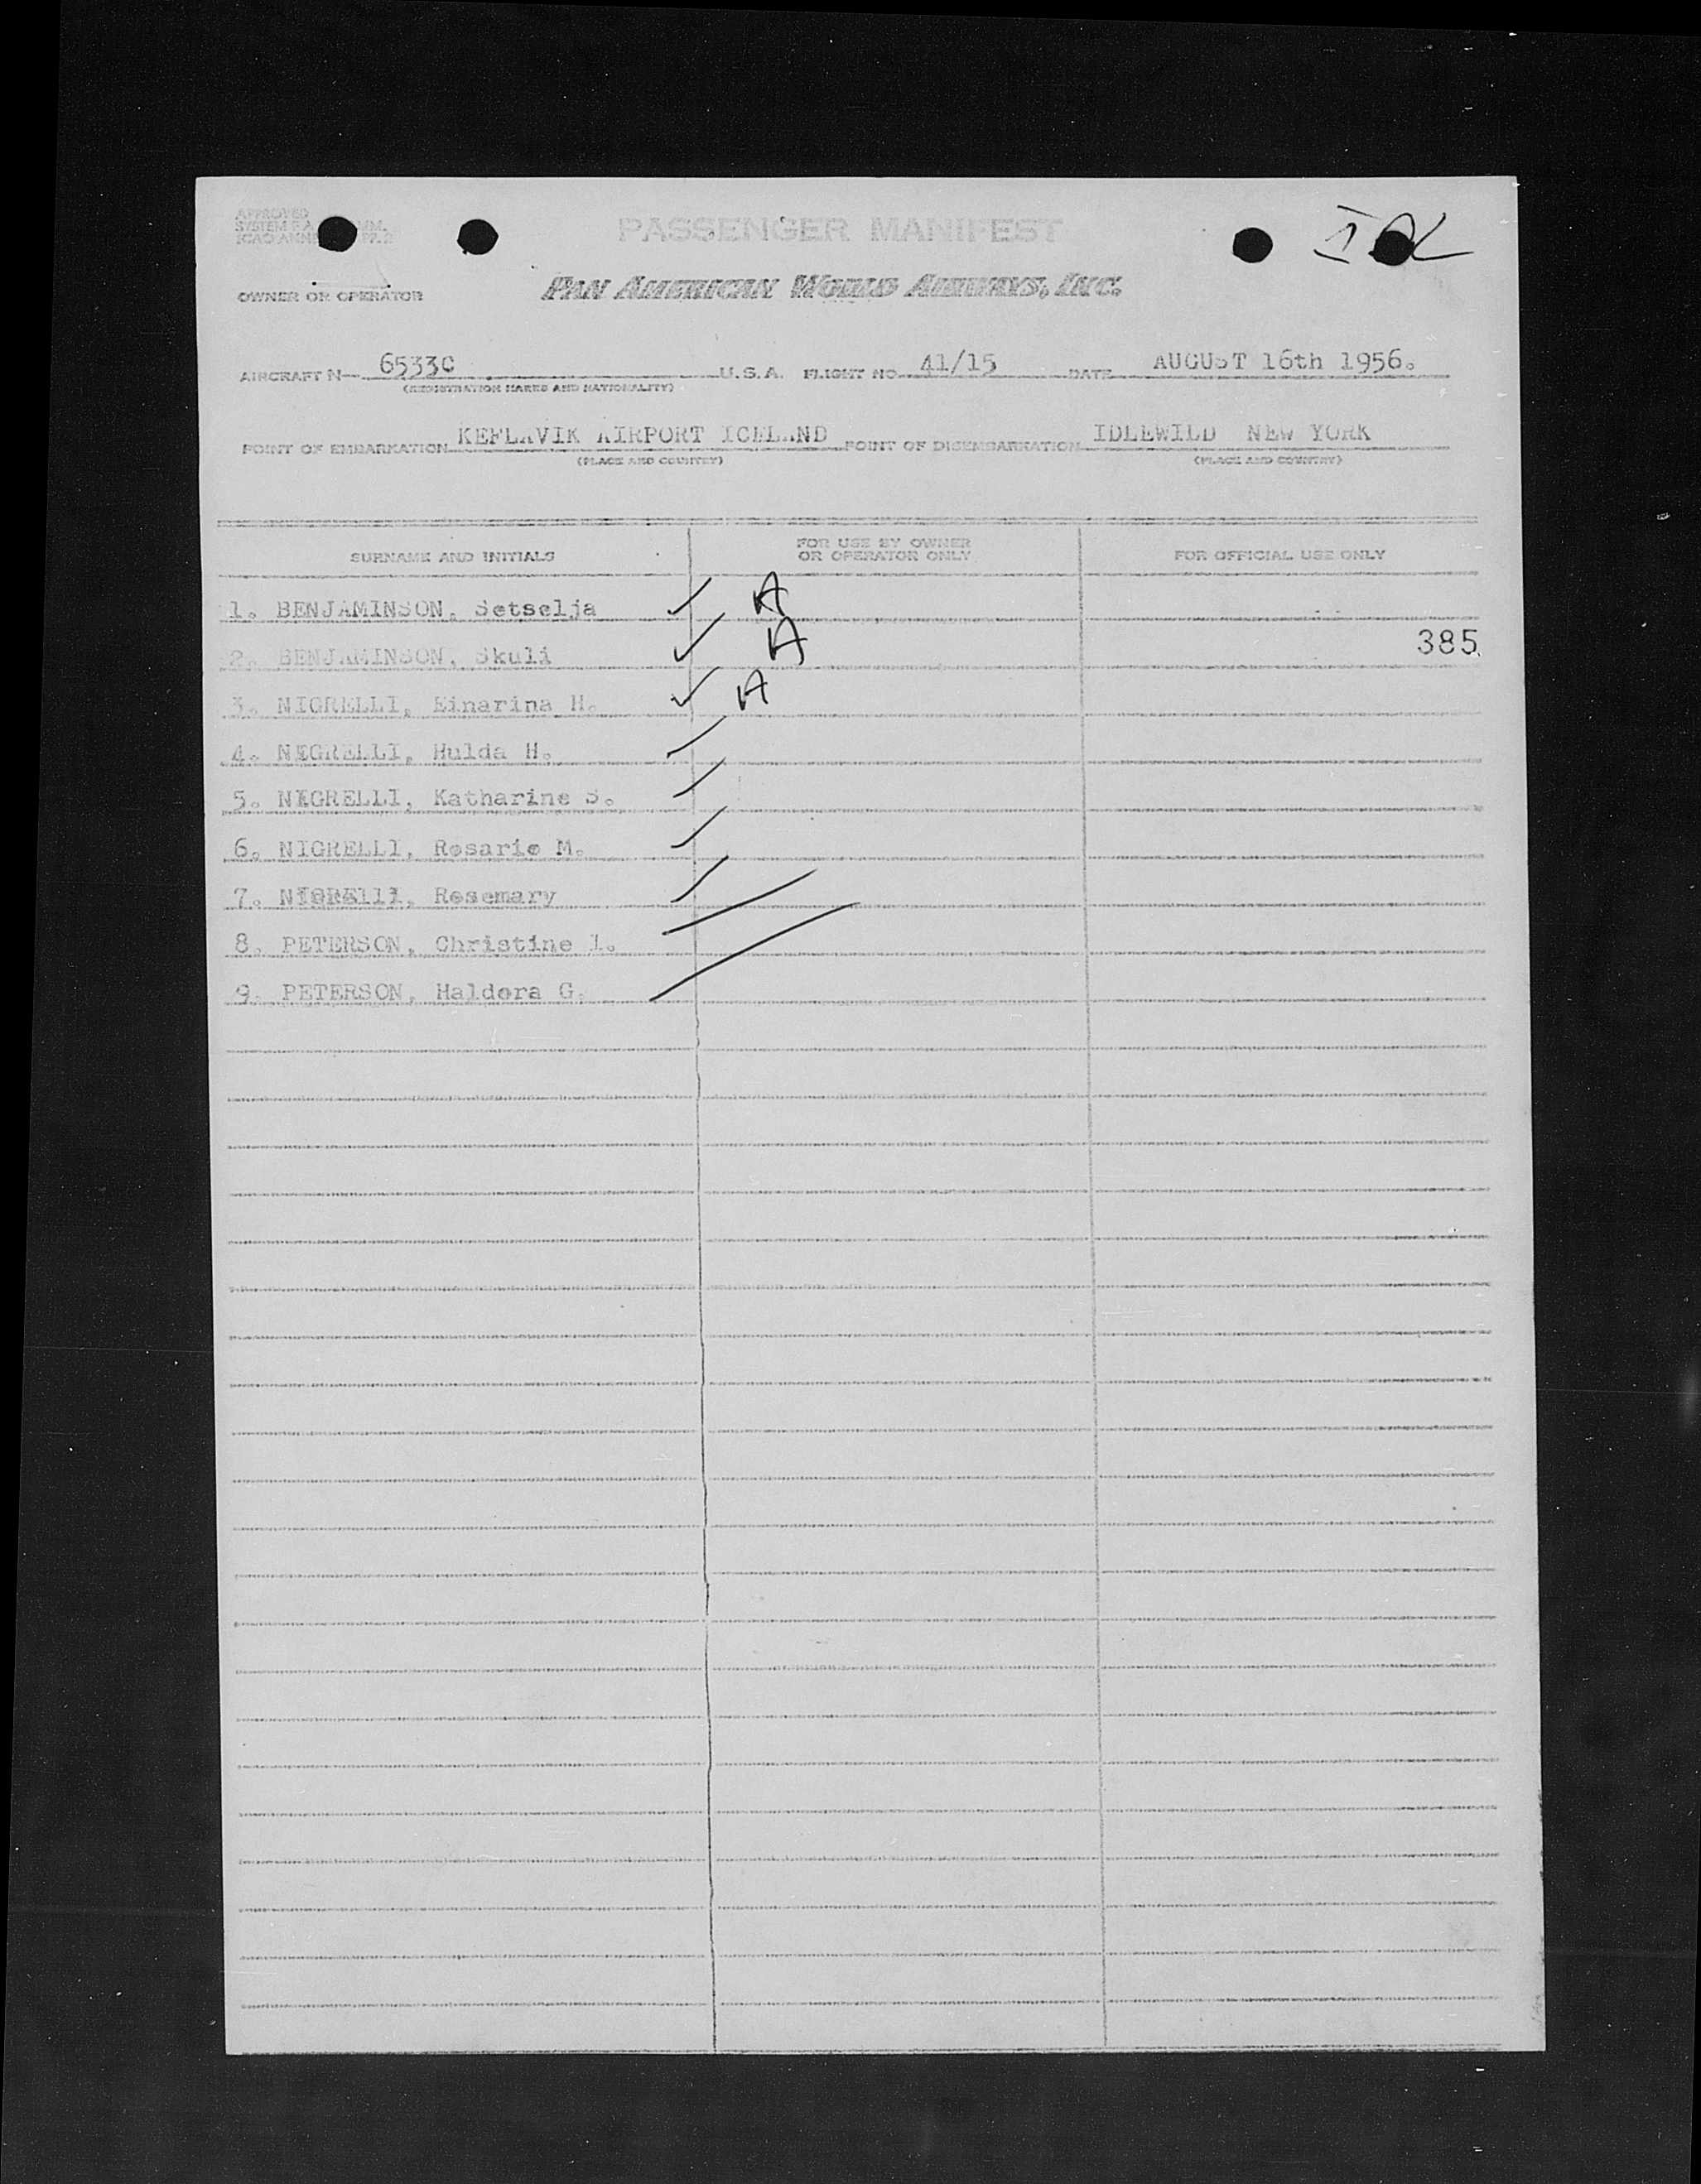 APPROVED
PASSENGER MANIFEST
OWNER OR OPERATOR PAN AMERICAN WORLD AIRWAYS, INC.
AIRCRAFT N— 6533C U.S.A. FLIGHT NO. 41/15 DATE AUGUST 16th 1956.
(REGISTRATION MARKS AND NATIONALITY)
POINT OF EMBARKATION KEFLAVIK AIRPORT ICELAND POINT OF DISEMBARKATION IDLEWILD NEW YORK
(PLACE AND COUNTRY) (PLACE AND COUNTRY)
SURNAME AND INITIALS FOR USE BY OWNER OR OPERATOR ONLY FOR OFFICIAL USE ONLY
1. BENJAMINSON, Setselja A
2. BENJAMINSON, Skuli A 385
3. NIGRELLI, Einarina H. A
4. NIGRELLI, Hulda H.
5. NIGRELLI, Katharine S.
6. NIGRELLI, Rosario M.
7. NIGRElli, Rosemary
8. PETERSON, Christine
9. PETERSON, Haldora G.